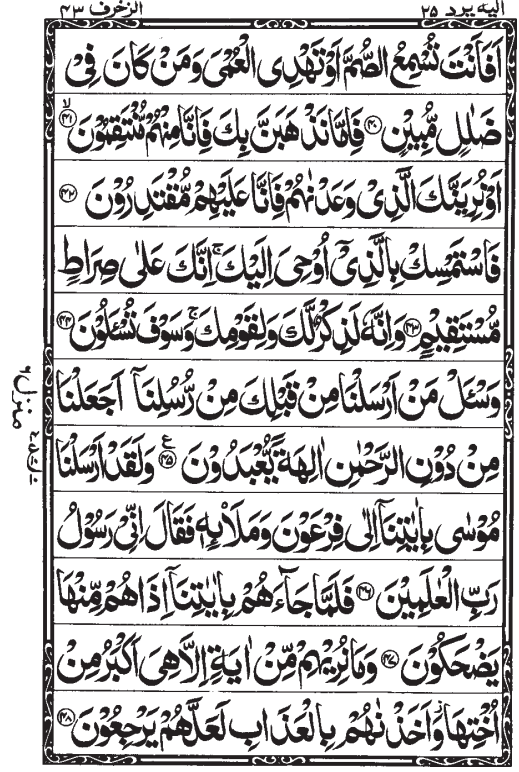 الیه یرد ۲۵
الزخرف ۴۳
اَفَاَنْتَ تُسْمِعُ الصُّمَّ اَوْ تَهْدِی الْعُمْیَ وَمَنْ كَانَ فِیْ
ضَلٰلٍ مُّبِیْنٍ ﴿۴۰﴾ فَاِمَّا نَذْهَبَنَّ بِكَ فَاِنَّا مِنْهُمْ مُّنْتَقِمُوْنَ ﴿۴۱﴾ۙ
اَوْ نُرِیَنَّكَ الَّذِیْ وَعَدْنٰهُمْ فَاِنَّا عَلَیْهِمْ مُّقْتَدِرُوْنَ ﴿۴۲﴾
فَاسْتَمْسِكْ بِالَّذِیْۤ اُوْحِیَ اِلَیْكَ ۚ اِنَّكَ عَلٰی صِرَاطٍ
مُّسْتَقِیْمٍ ﴿۴۳﴾ وَاِنَّهٗ لَذِكْرٌ لَّكَ وَلِقَوْمِكَ ۚ وَسَوْفَ تُسْـَٔلُوْنَ ﴿۴۴﴾
وَسْـَٔلْ مَنْ اَرْسَلْنَا مِنْ قَبْلِكَ مِنْ رُّسُلِنَاۤ اَجَعَلْنَا
مِنْ دُوْنِ الرَّحْمٰنِ اٰلِهَةً یُّعْبَدُوْنَ ﴿۴۵﴾ع وَلَقَدْ اَرْسَلْنَا
مُوْسٰی بِاٰیٰتِنَاۤ اِلٰی فِرْعَوْنَ وَمَلَا۟ئِهٖ فَقَالَ اِنِّیْ رَسُوْلُ
رَبِّ الْعٰلَمِیْنَ ﴿۴۶﴾ فَلَمَّا جَآءَهُمْ بِاٰیٰتِنَاۤ اِذَا هُمْ مِّنْهَا
یَضْحَكُوْنَ ﴿۴۷﴾ وَمَا نُرِیْهِمْ مِّنْ اٰیَةٍ اِلَّا هِیَ اَكْبَرُ مِنْ
اُخْتِهَا ؗ وَاَخَذْنٰهُمْ بِالْعَذَابِ لَعَلَّهُمْ یَرْجِعُوْنَ ﴿۴۸﴾
منزل ۶